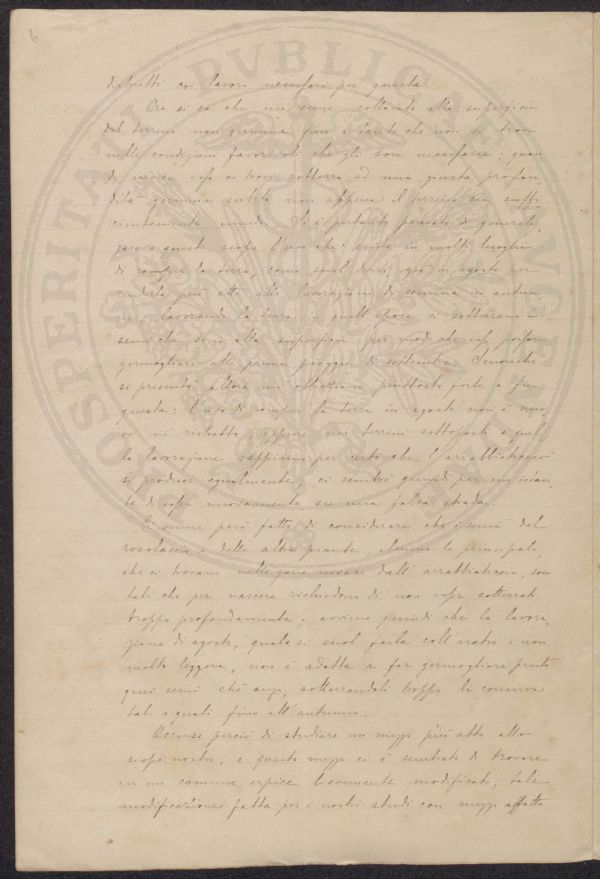 6
distrutti coi lavori necessari per questa
Ora si sa che un seme collocato alla superficie
del terreno non germina fino a tanto che non si trovi
nelle condizioni favorevoli che gli son necessarie; quan
do invece esso si trovi sotterra ad una giusta profon
dità germina subito non appena il terreno sia suffi
cientemente umido. Si è pertanto pensato di generaliz
zare a questo scopo l'uso che esiste in molti luoghi
di romper la terra, come suol dirsi, già in agosto per
renderla più atta alle lavorazioni di semina in autun
no. Lavorando la terra in quell'epoca si sotterrano i
semi che sono alla superficie per modo che essi possono
germogliare alle prime pioggie di settembre. Senonchè
si presentò allora un'obbiezione piuttosto forte e fu
questa: l'uso di romper la terra in agosto non è nuo
vo nè ristretto, eppure nei terreni sottoposti a quel
la lavorazione sappiamo per certo che l'arrabbiaticcio
si produce egualmente, ci sembrò quindi per un istan
te di esser nuovamente su una falsa strada.
Ci venne però fatto di considerare che i semi del
rosolaccio e delle altre piante, almeno le principali,
che si trovano nelle zone invase dall'arrabbiaticcio, son
tali che per nascere richiedono di non esser sotterrati
troppo profondamente; avviene quindi che la lavora
zione di agosto, quale si suol farla coll'aratro e non
molto leggera, non è adatta a far germogliare presto
quei semi chè anzi, sotterrandoli troppo li conserva
tali e quali fino all'autunno.
Occorse perciò di studiare un mezzo più atto allo
scopo nostro, e questo mezzo ci è sembrato di trovare
in un comune erpice lievemente modificato; tale
modificazione fatta per i nostri studi con mezzi affatto
PVBLICAE
PROSPERITATI
AVGENDAE